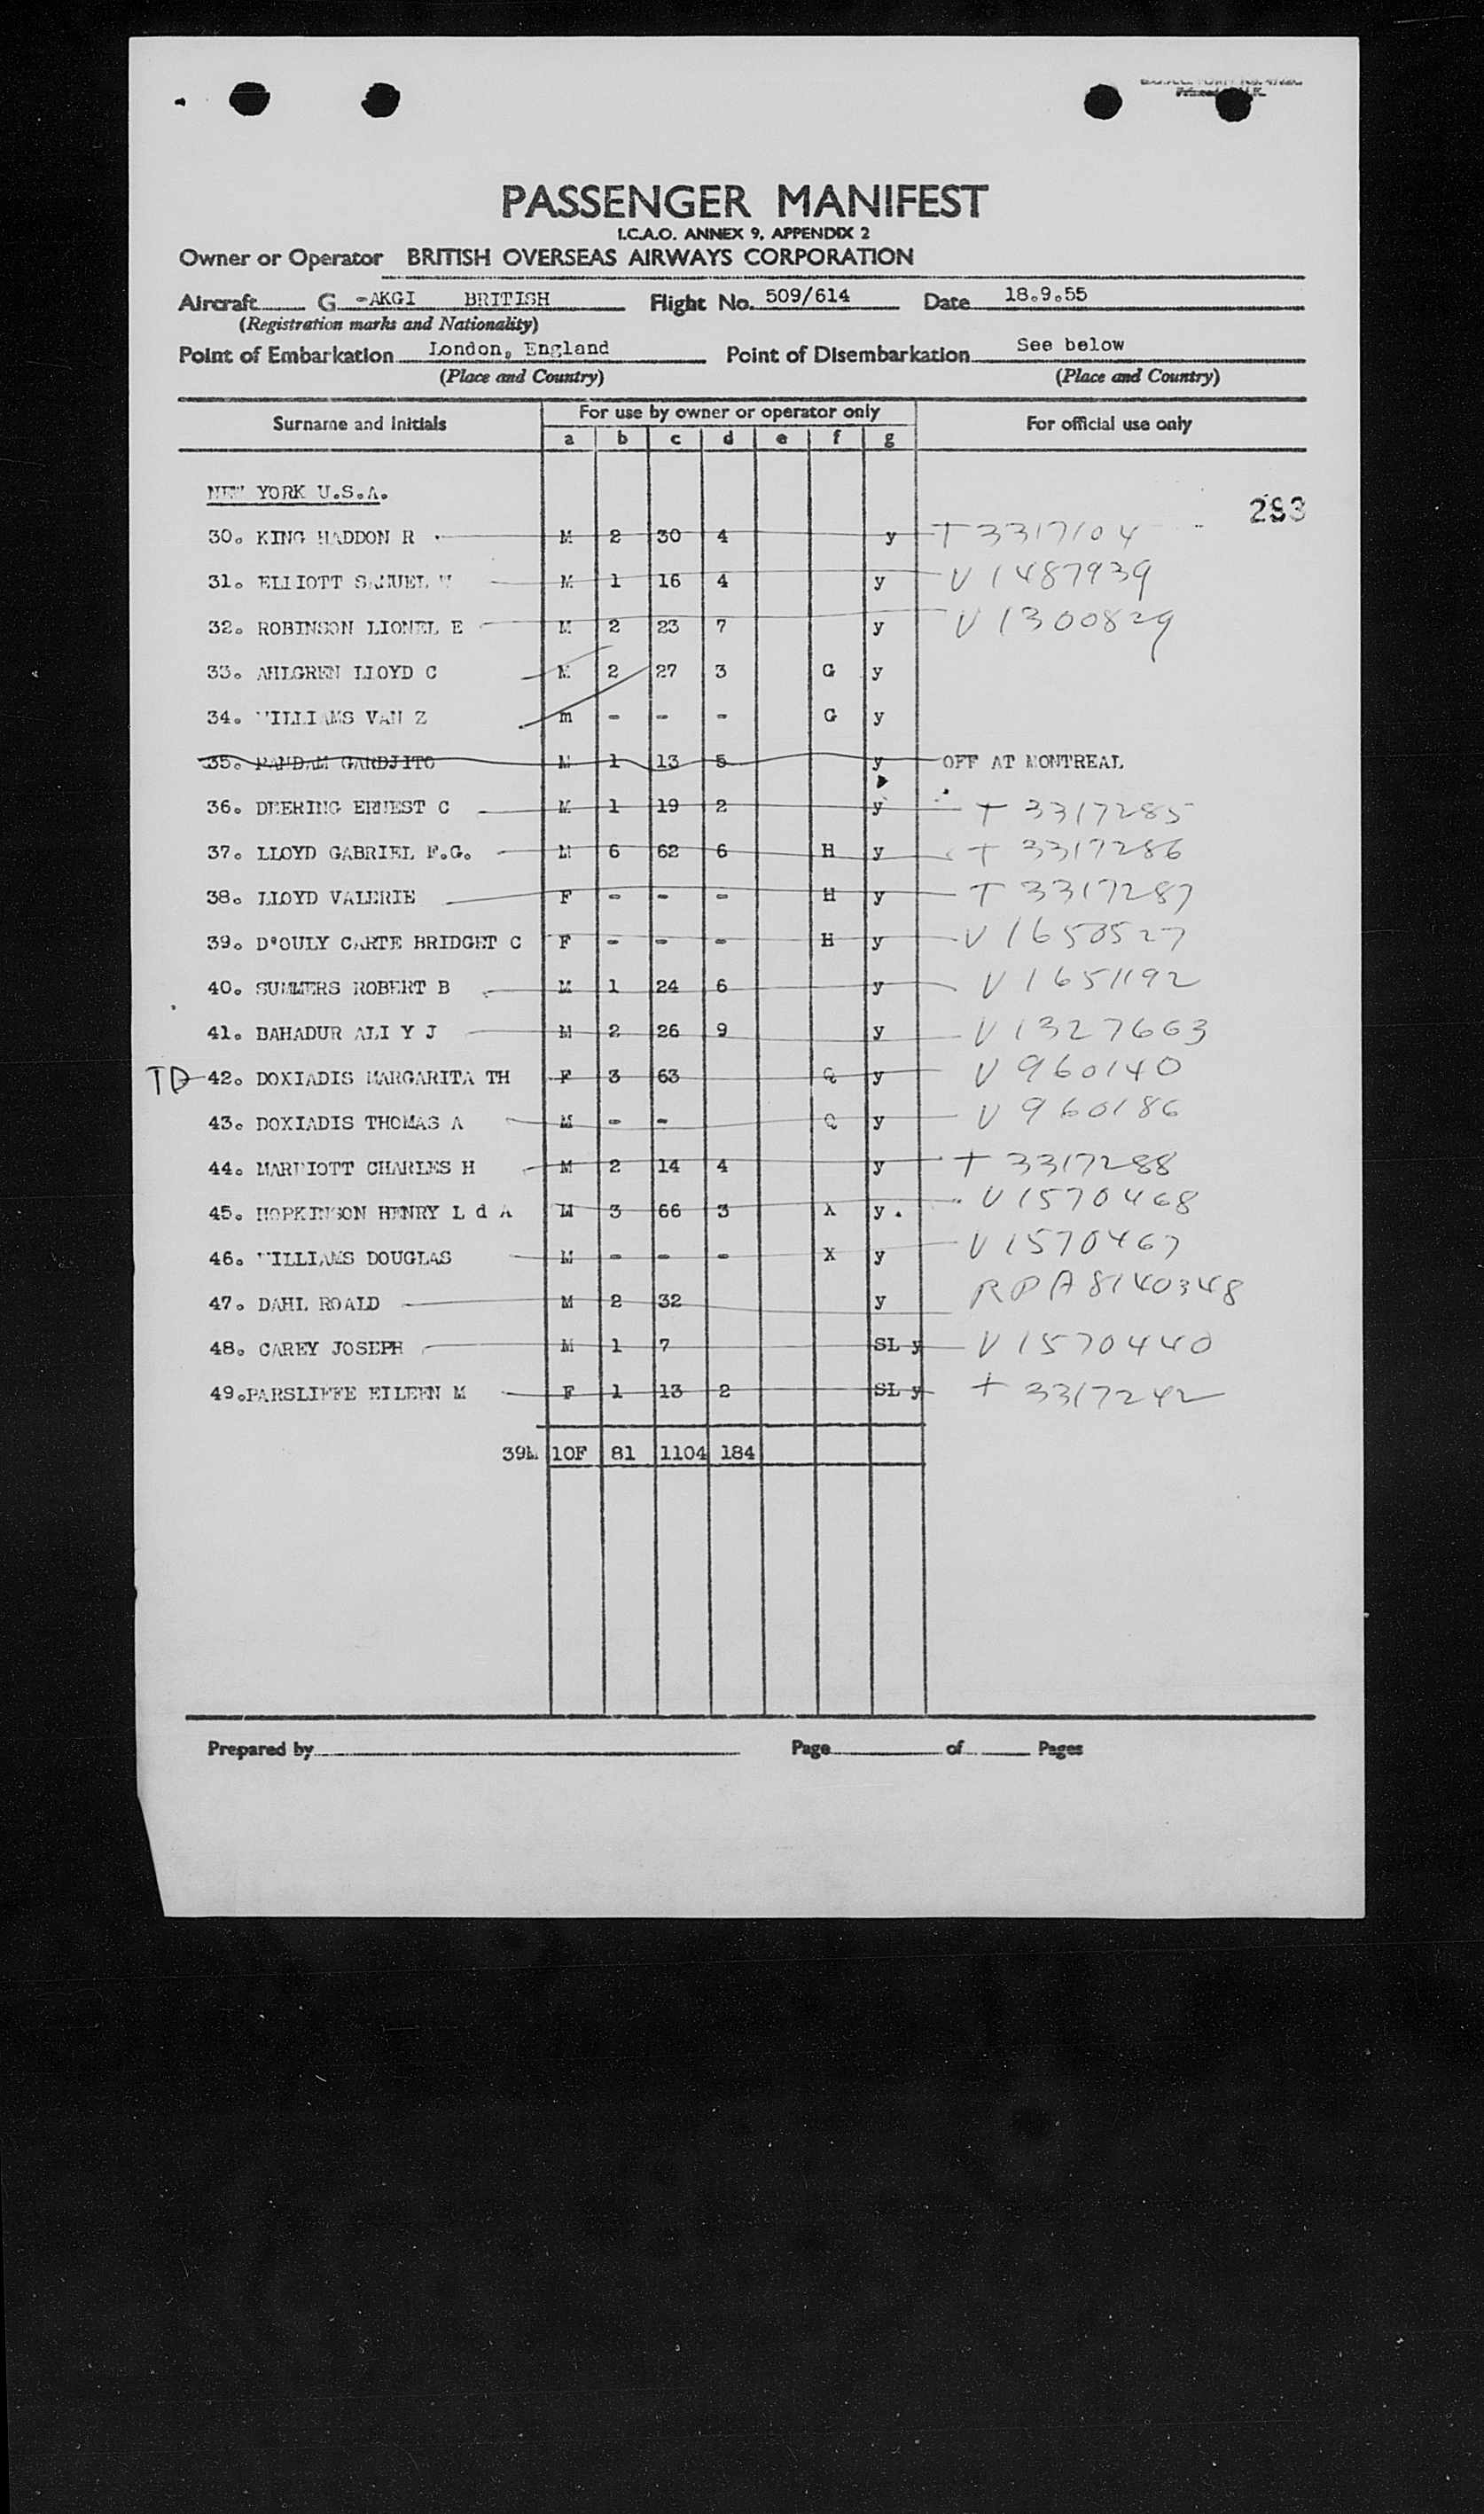 PASSENGER MANIFEST
I.C.A.O. ANNEX 9, APPENDIX 2
Owner or Operator BRITISH OVERSEAS AIRWAYS CORPORATION
Aircraft G -AKGI BRITISH Flight No. 509/614 Date 18.9.55
(Registration marks and Nationality)
Point of Embarkation London, England Point of Disembarkation See below
(Place and Country) (Place and Country)
Surname and Initials For use by owner or operator only For official use only
a b c d e f g
NEW YORK U.S.A.
283
30. KING HADDON R M 2 30 4 y T 3317104
31. ELLIOTT SAMUEL W M 1 16 4 y V 1487939
32. ROBINSON LIONEL E M 2 23 7 y V 1300829
33. AHLGREN LLOYD C M 2 27 3 G y
34. WILLIAMS VAN Z m - - - G y
35. RANDAM GARDJITO M 1 13 5 y OFF AT MONTREAL
36. DEERING ERNEST C M 1 19 2 y T 3317285
37. LLOYD GABRIEL F.G. M 6 62 6 H y T 3317286
38. LLOYD VALERIE F - - - H y T 3317287
39. D'OULY CARTE BRIDGET C F - - - H y V 1650527
40. SUMMERS ROBERT B M 1 24 6 y V 1651192
41. BAHADUR ALI Y J M 2 26 9 y V 1327663
TD 42. DOXIADIS MARGARITA TH F 3 63 Q y V 960140
43. DOXIADIS THOMAS A M - - Q y V 960186
44. MARRIOTT CHARLES H M 2 14 4 y T 3317288
45. HOPKINSON HENRY L d A M 3 66 3 X y. V 1570468
46. WILLIAMS DOUGLAS M - - - X y V 1570467
47. DAHL ROALD M 2 32 y RPA 8140348
48. CAREY JOSEPH M 1 7 SL y V 1570440
49.PARSLIFFE EILEEN M F 1 13 2 SL y T 3317242
39M 10F 81 1104 184
Prepared by Page of Pages